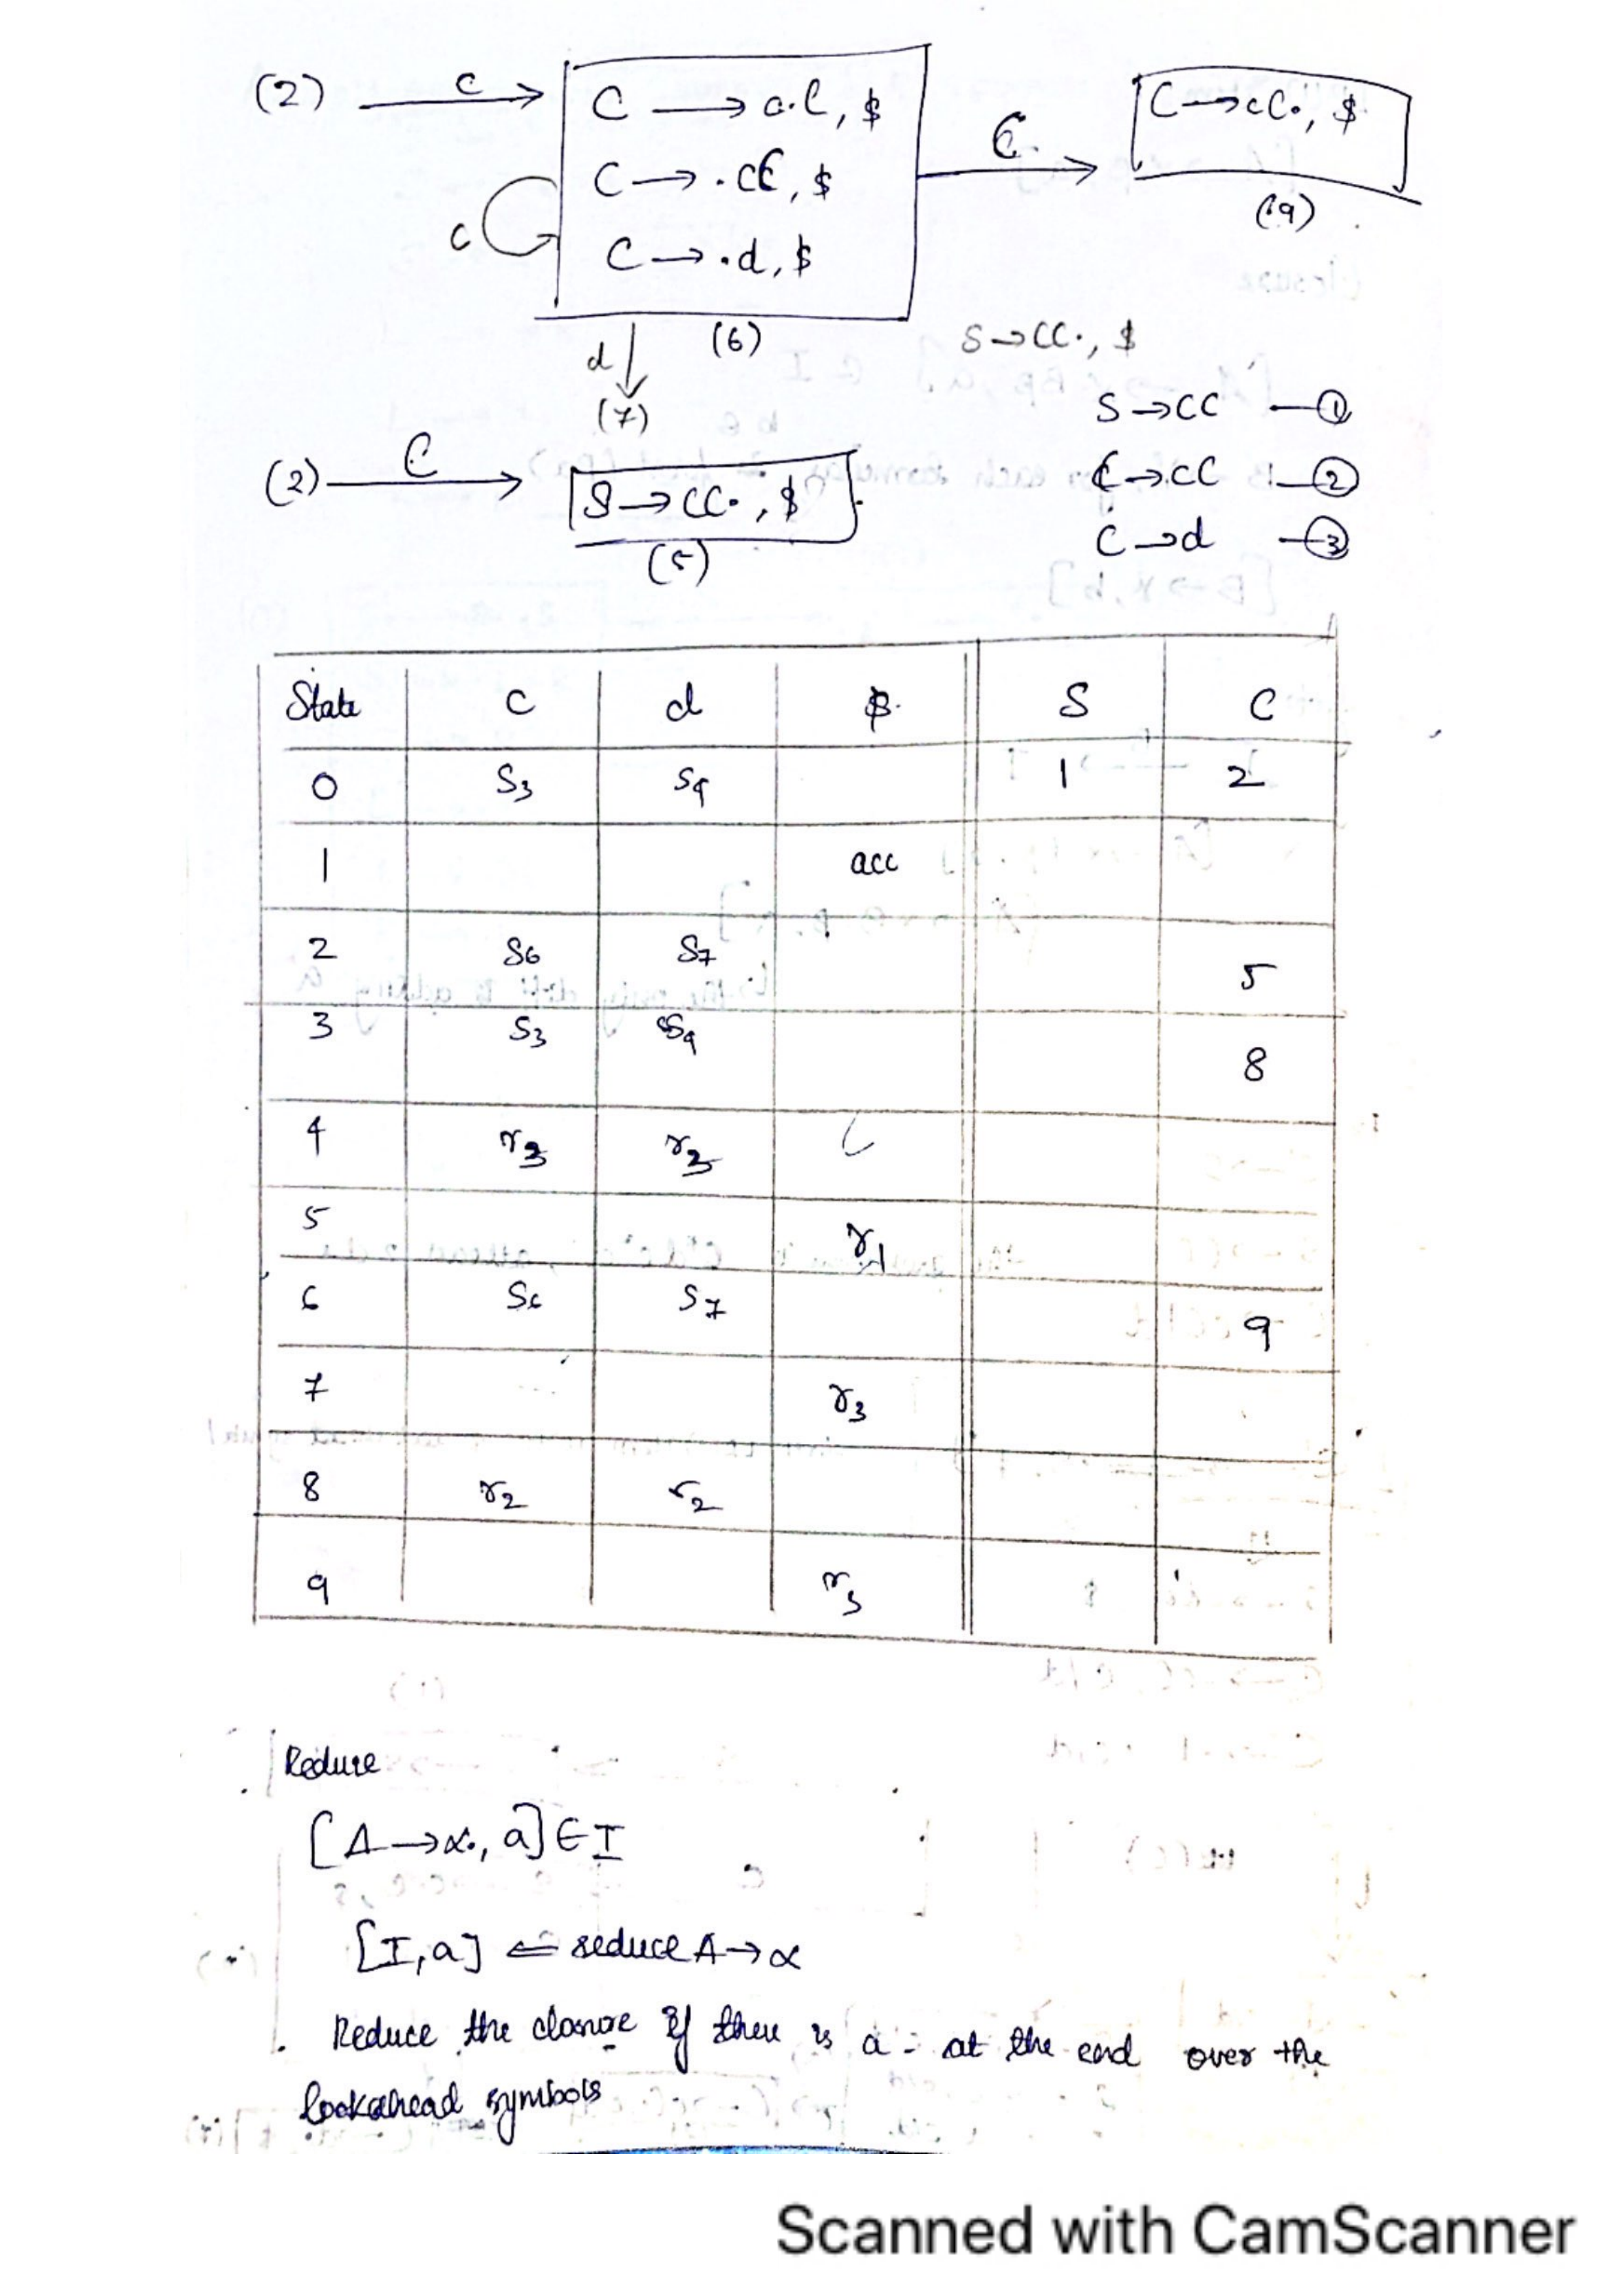 (2) c C → c.C, $ C C → cC., $
C → .cC, $ (9)
c C → .d, $
d (6) S → CC., $
(7) S → CC — ①
(2) C S → CC., $ C → cC — ②
(5) C → d — ③
State c d $ S C
0 S3 S4 1 2
1 acc
2 S6 S7 5
3 S3 S4 8
4 r3 r3
5 r1
6 S6 S7 9
7 r3
8 r2 r2
9 r3
Reduce
[A → α., a] ∈ I
[I, a] ⇐ reduce A → α
Reduce the closure if there is a . at the end over the
lookahead symbols
Scanned with CamScanner